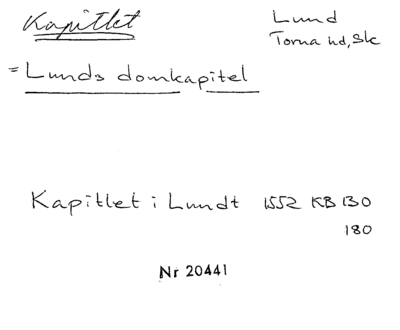 Kapitlet
Lund
Torna hd, Sk
= Lunds domkapitel
Kapitlet i Lundt 1552 KB 130
180
Nr 20441